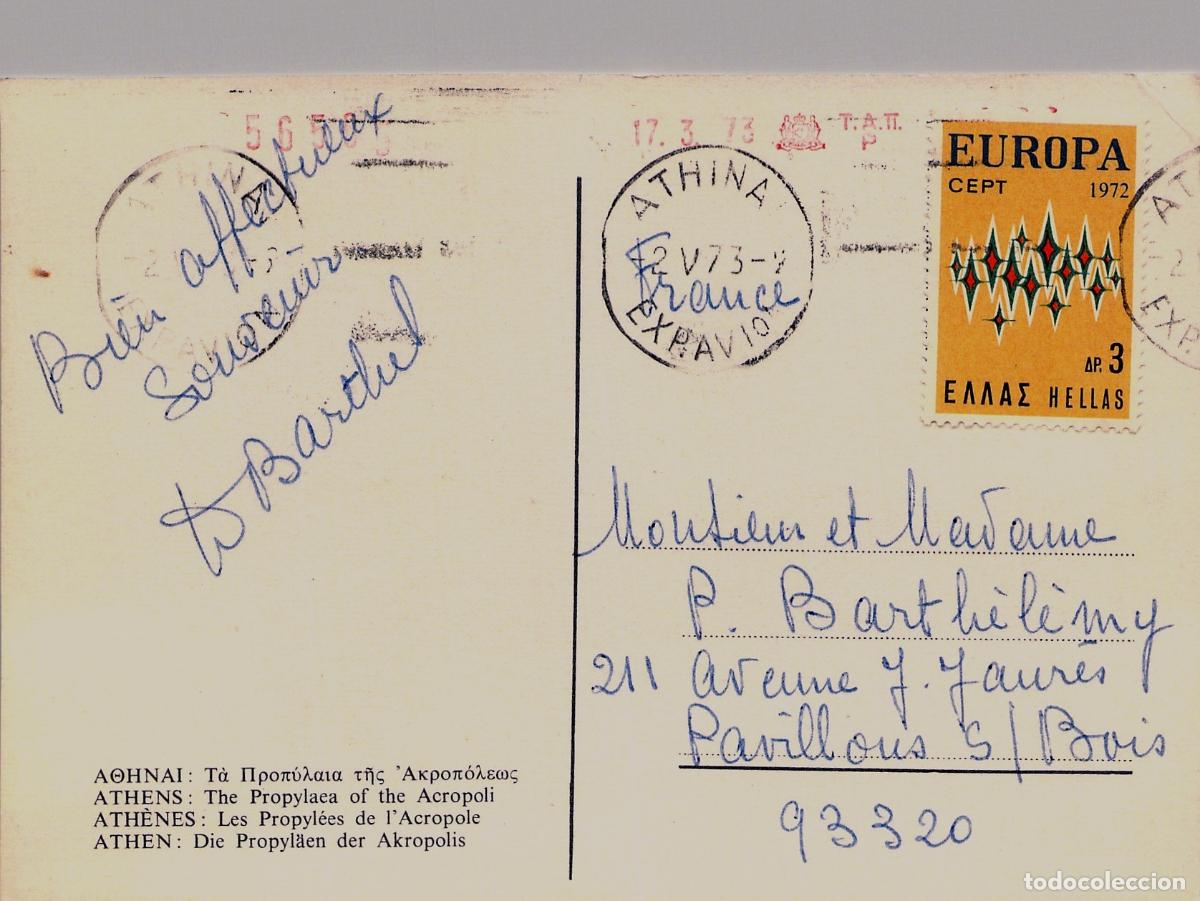 17. 3. 73 Τ.Α.Π.
P
EUROPA
CEPT 1972
ΔΡ. 3
ΕΛΛΑΣ HELLAS
ATHINAI
2 V 73-
EXP. AVION
France
Bien affectueux
Souvenir
D Barthel
Monsieur et Madame
P. Barthèlèmy
211 Avenue J. Jaurès
Pavillons S/Bois
93320
ΑΘΗΝΑΙ: Τὰ Προπύλαια τῆς Ἀκροπόλεως
ATHENS: The Propylaea of the Acropoli
ATHÈNES: Les Propylées de l'Acropole
ATHEN: Die Propyläen der Akropolis
todocoleccion